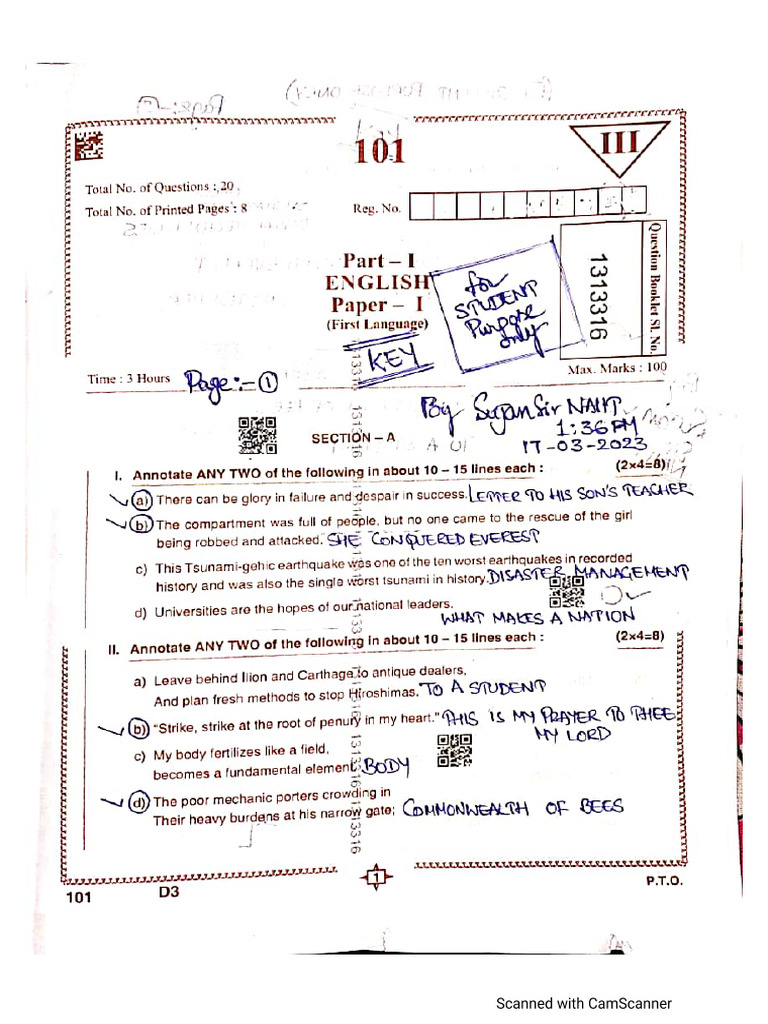 101
III
Total No. of Questions : 20
Total No. of Printed Pages : 8
Reg. No.
Part – I
ENGLISH
Paper – I
(First Language)
for
STUDENT
Purpose
only
1313316
Question Booklet Sl. No.
KEY
Time : 3 Hours
Page:- 1
Max. Marks : 100
By Sujan Sir
1:36 PM
17-03-2023
SECTION – A
I. Annotate ANY TWO of the following in about 10 – 15 lines each : (2×4=8)
a) There can be glory in failure and despair in success. LETTER TO HIS SON'S TEACHER
b) The compartment was full of people, but no one came to the rescue of the girl
being robbed and attacked. SHE CONQUERED EVEREST
c) This Tsunami-gehic earthquake was one of the ten worst earthquakes in recorded
history and was also the single worst tsunami in history. DISASTER MANAGEMENT
d) Universities are the hopes of our national leaders.
WHAT MAKES A NATION
II. Annotate ANY TWO of the following in about 10 – 15 lines each : (2×4=8)
a) Leave behind Ilion and Carthage to antique dealers,
And plan fresh methods to stop Hiroshimas. TO A STUDENT
b) "Strike, strike at the root of penury in my heart." THIS IS MY PRAYER TO THEE
MY LORD
c) My body fertilizes like a field,
becomes a fundamental element. BODY
d) The poor mechanic porters crowding in
Their heavy burdens at his narrow gate; COMMONWEALTH OF BEES
1
P.T.O.
101 D3
Scanned with CamScanner